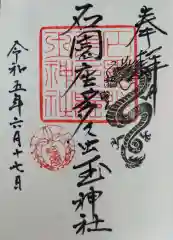 奉拝
石園座多久虫玉神社
令和五年六月十七日